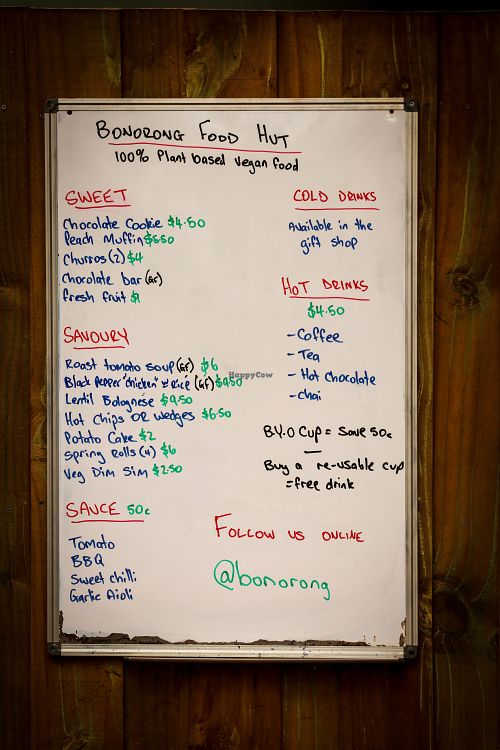 BONORONG FOOD HUT
100% Plant based vegan food
SWEET
Chocolate Cookie $4.50
Peach Muffin $5.50
Churros (2) $4
Chocolate bar (GF)
fresh fruit $1
SAVOURY
Roast tomato soup (GF) $6
Black Pepper "chicken" & rice (GF) $9.50
Lentil Bolognése $9.50
Hot Chips OR wedges $6.50
Potato Cake $2
Spring Rolls (4) $6
Veg Dim Sim $2.50
SAUCE 50c
Tomato
BBQ
Sweet chilli
Garlic Aioli
COLD DRINKS
Available in the
gift shop
HOT DRINKS
$4.50
- Coffee
- Tea
- Hot Chocolate
- chai
B.Y.O Cup = Save 50c
Buy a re-usable cup
= free drink
FOLLOW US ONLINE
@bonorong
HappyCow